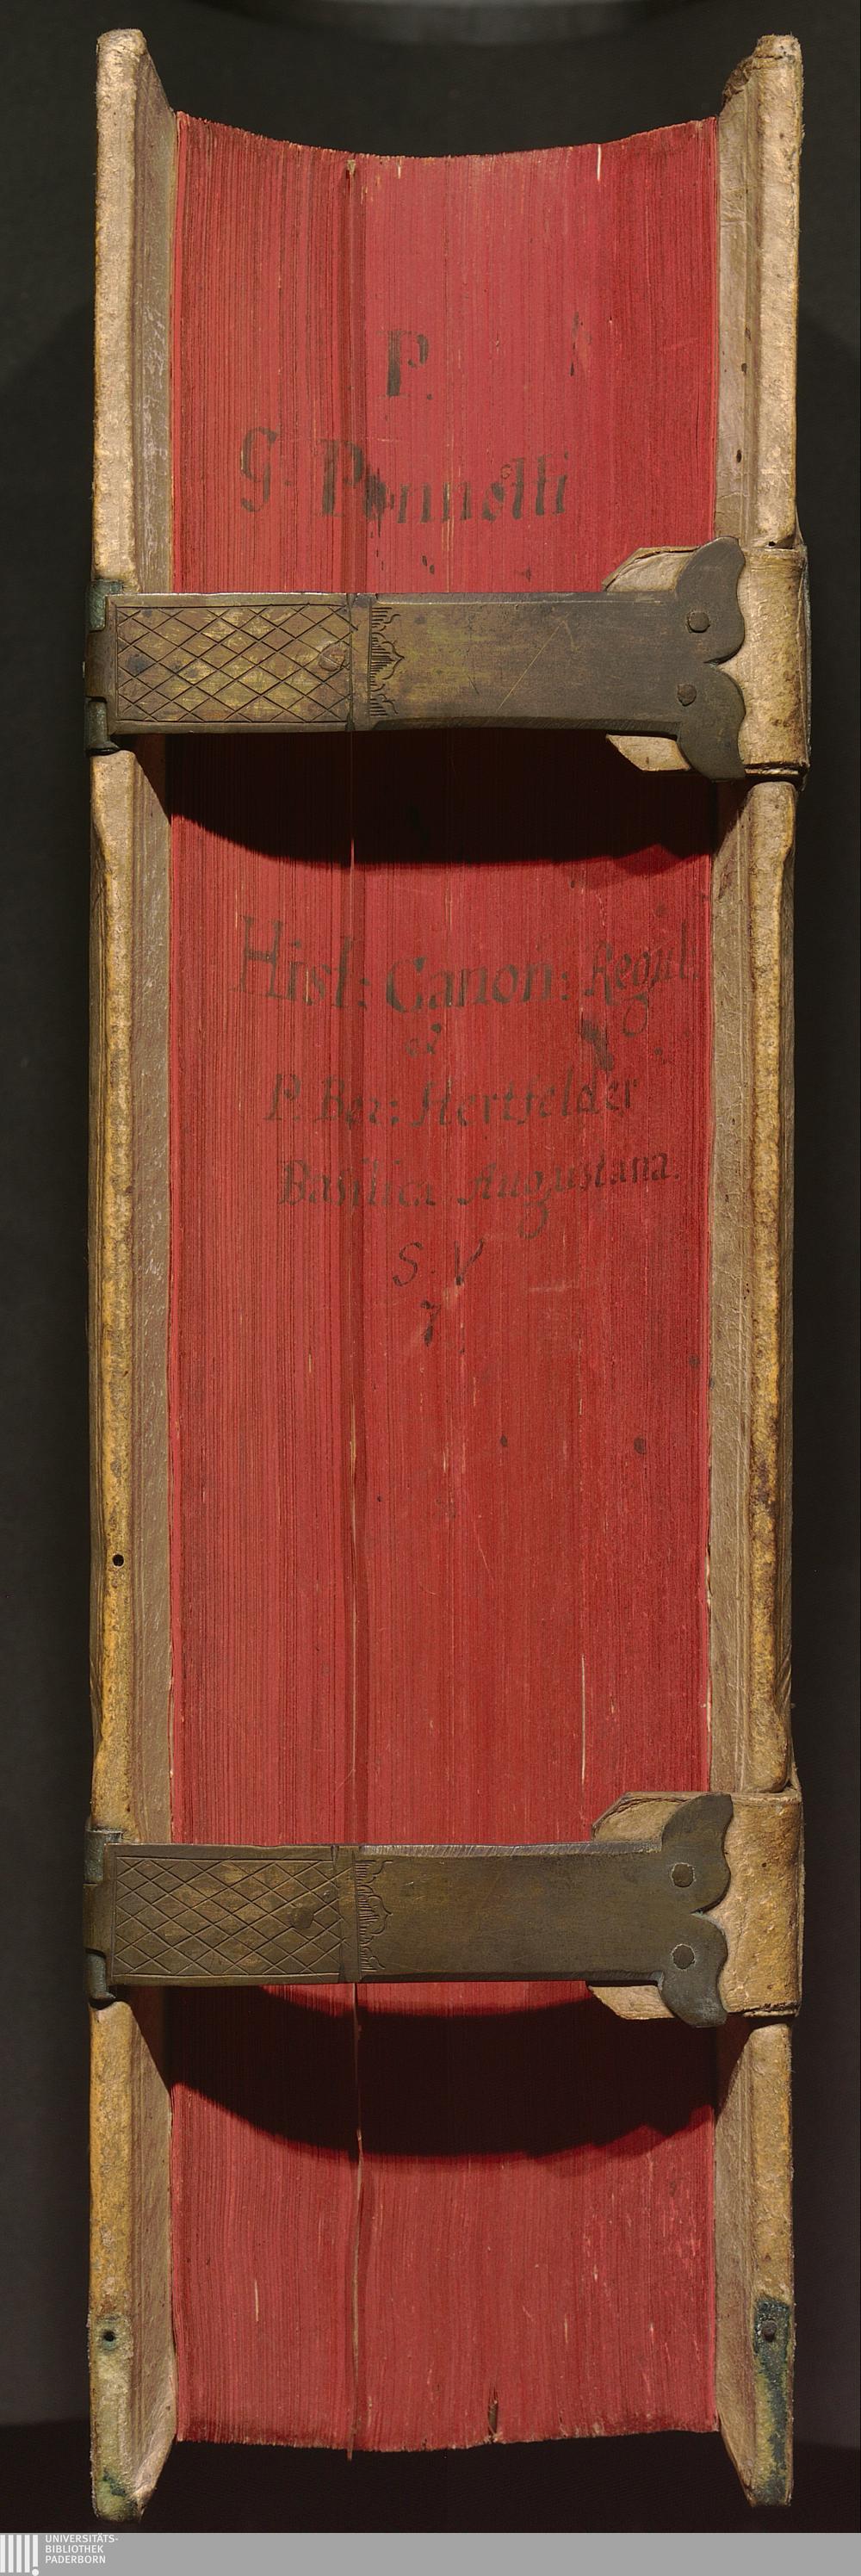 P.
G: Pennotti
Hist: Canon: Regul.
et
P. Ber: Hertfelder
Basilica Augustana.
S. V
7
UNIVERSITÄTS-
BIBLIOTHEK
PADERBORN